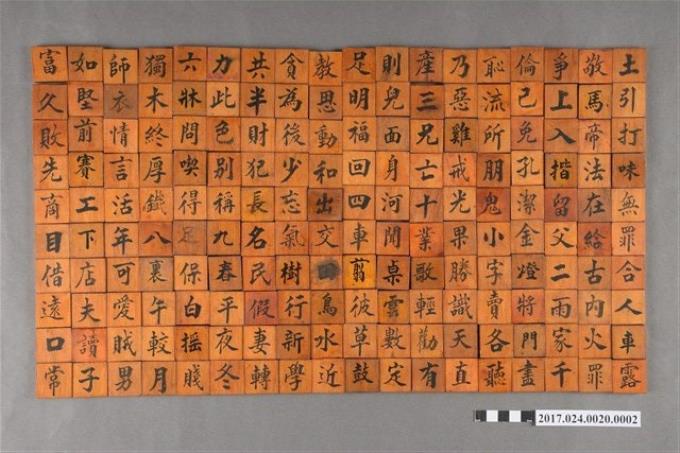 富如師獨六力共貪教足則產乃恥倫爭敬土
久堅衣木牀此半為恩明兒三惡流己上馬引
敗前情終問色財後動福面兄雞所免入帝打
先賽言厚喫別犯少和回身亡戒朋孔揩法味
商工活鐵得稱長忘出四河十光鬼潔留在無
目下年八足九名氣交車聞業果小金父給罪
借店可裏保春民樹田翦桌歌勝字燈二古合
遠夫愛午白平假行鳥彼雲輕識賣將雨內人
口讀賊較搖夜妻新水草數勸天各門家火車
常子男月賤冬轉學近鼓定有直聽盡千罪露
2017.024.0020.0002